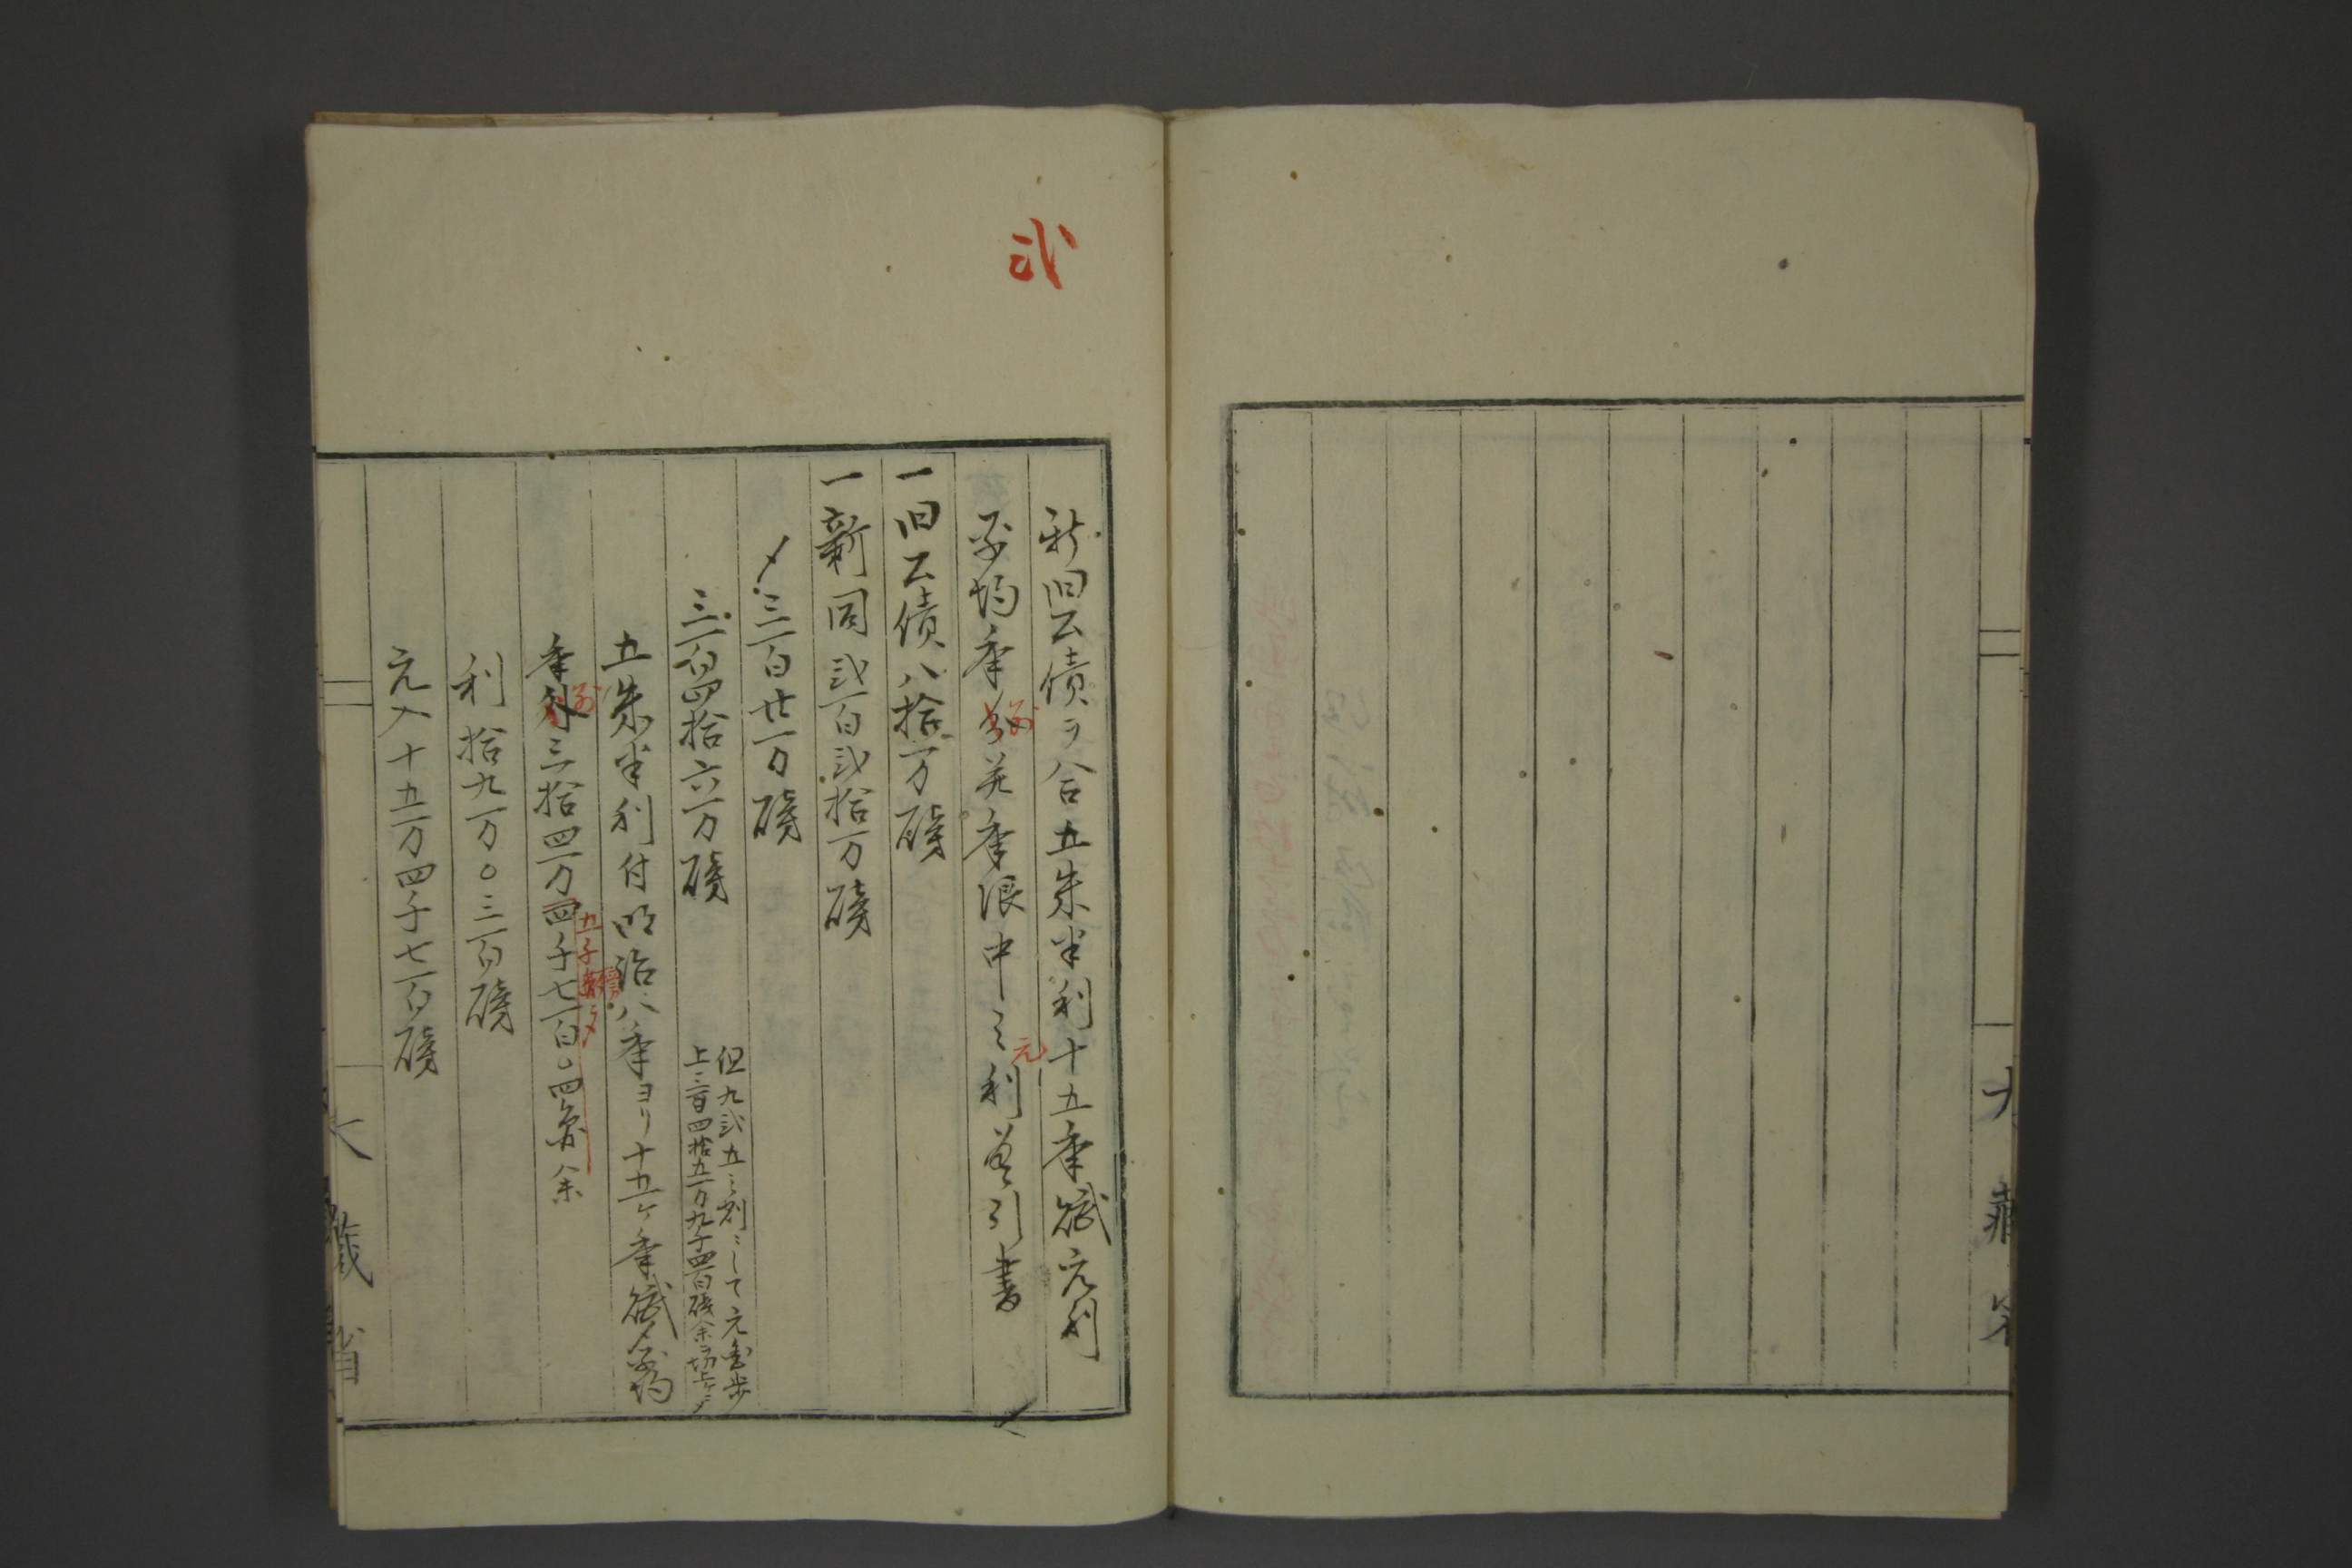 弐
新旧公債ヲ合五朱半利十五年賦元利
平均年割并年限中之元利差引書
一旧公債八拾一万磅
一新同弐百弐拾一万磅
〆三百廿一万磅
三百四拾六万磅
但九弐五之割ニして元金歩
上三百四拾五万九千四百磅余
五朱半利付明治八年ヨリ十五ヶ年賦〆平均
年割三拾四万四千七百〇四磅余
五千磅
利拾九万〇三百磅
元入十五万四千七百磅
大蔵省
大蔵省